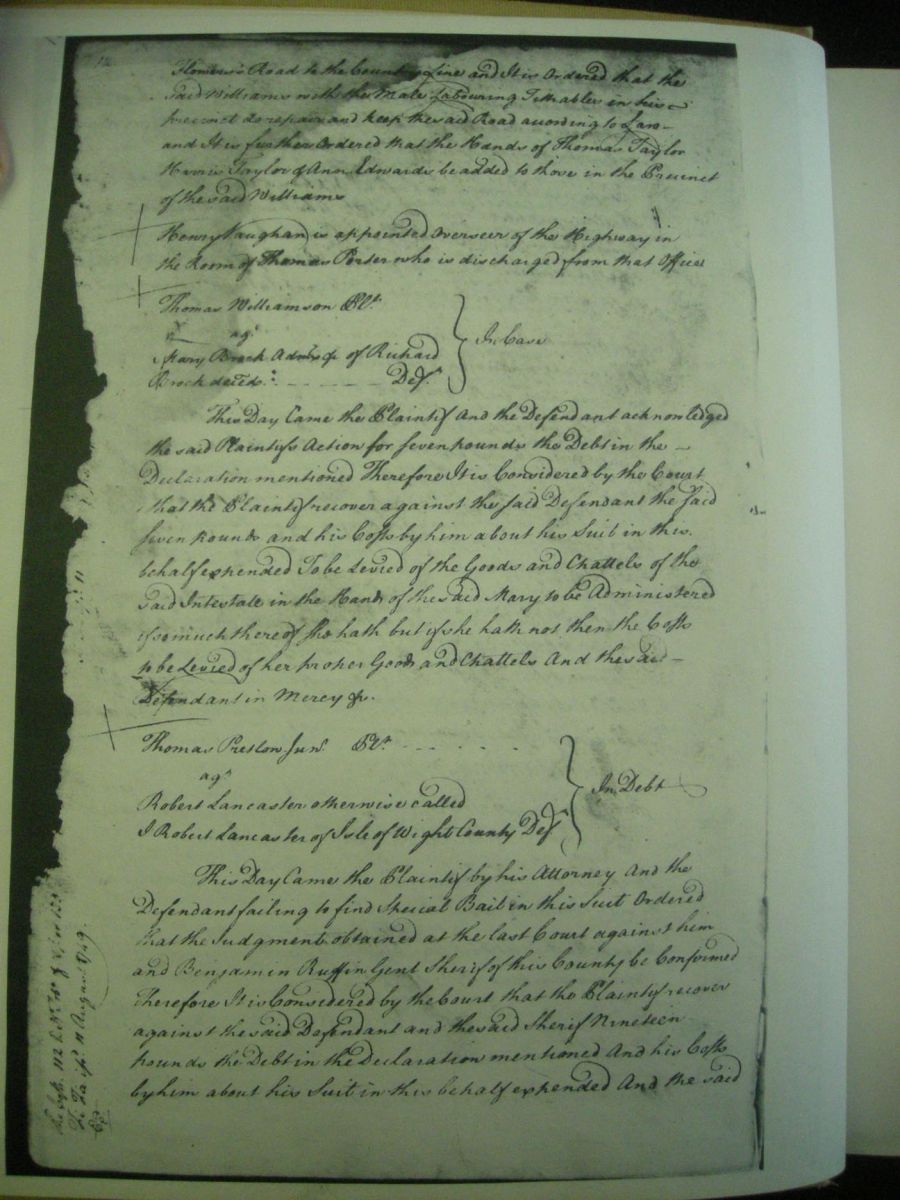 Flowers's Road to the County Line and It is Ordered that the
Said Williams with the Male Labouring Tithables in his
precinct do repair and keep the said Road according to Law
and It is further Ordered that the Hands of Thomas Taylor
Harris Taylor & Ann Edwards be added to those in the Precinct
of the said Williams
Henry Vaughan is appointed Overseer of the Highway in
the Room of Thomas Porter who is discharged from that Office
Thomas Williamson Plt.
agt
Mary Brock Admrx &c of Richard
Brock deced. Deft
In Case
This Day Came the Plaintif And the Defendant acknowledged
the said Plaintifs Action for seven pounds the Debt in the
Declaration mentioned Therefore It is Considered by the Court
that the Plaintif recover against the said Defendant the said
seven Pounds and his Costs by him about his Suit in this
behalf expended To be Levied of the Goods and Chattels of the
said Intestate in the Hands of the said Mary to be Administered
if so much thereof she hath but if she hath not then the Costs
to be Levied of her proper Goods and Chattels And the said
Defendant in Mercy &c.
Thomas Preston Junr. Plt.
agt
Robert Lancaster otherwise called
I Robert Lancaster of Isle of Wight County Deft
In Debt
This Day Came the Plaintif by his Attorney And the
Defendant failing to find Special Bail in this Suit Ordered
that the Judgment obtained at the last Court against him
and Benjamin Ruffin Gent Sherif of this County be Confirmed
Therefore It is Considered by the Court that the Plaintif recover
against the said Defendant and the said Sherif Nineteen
pounds the Debt in the Declaration mentioned And his Costs
by him about his Suit in this behalf expended And the said
11 August 1749.